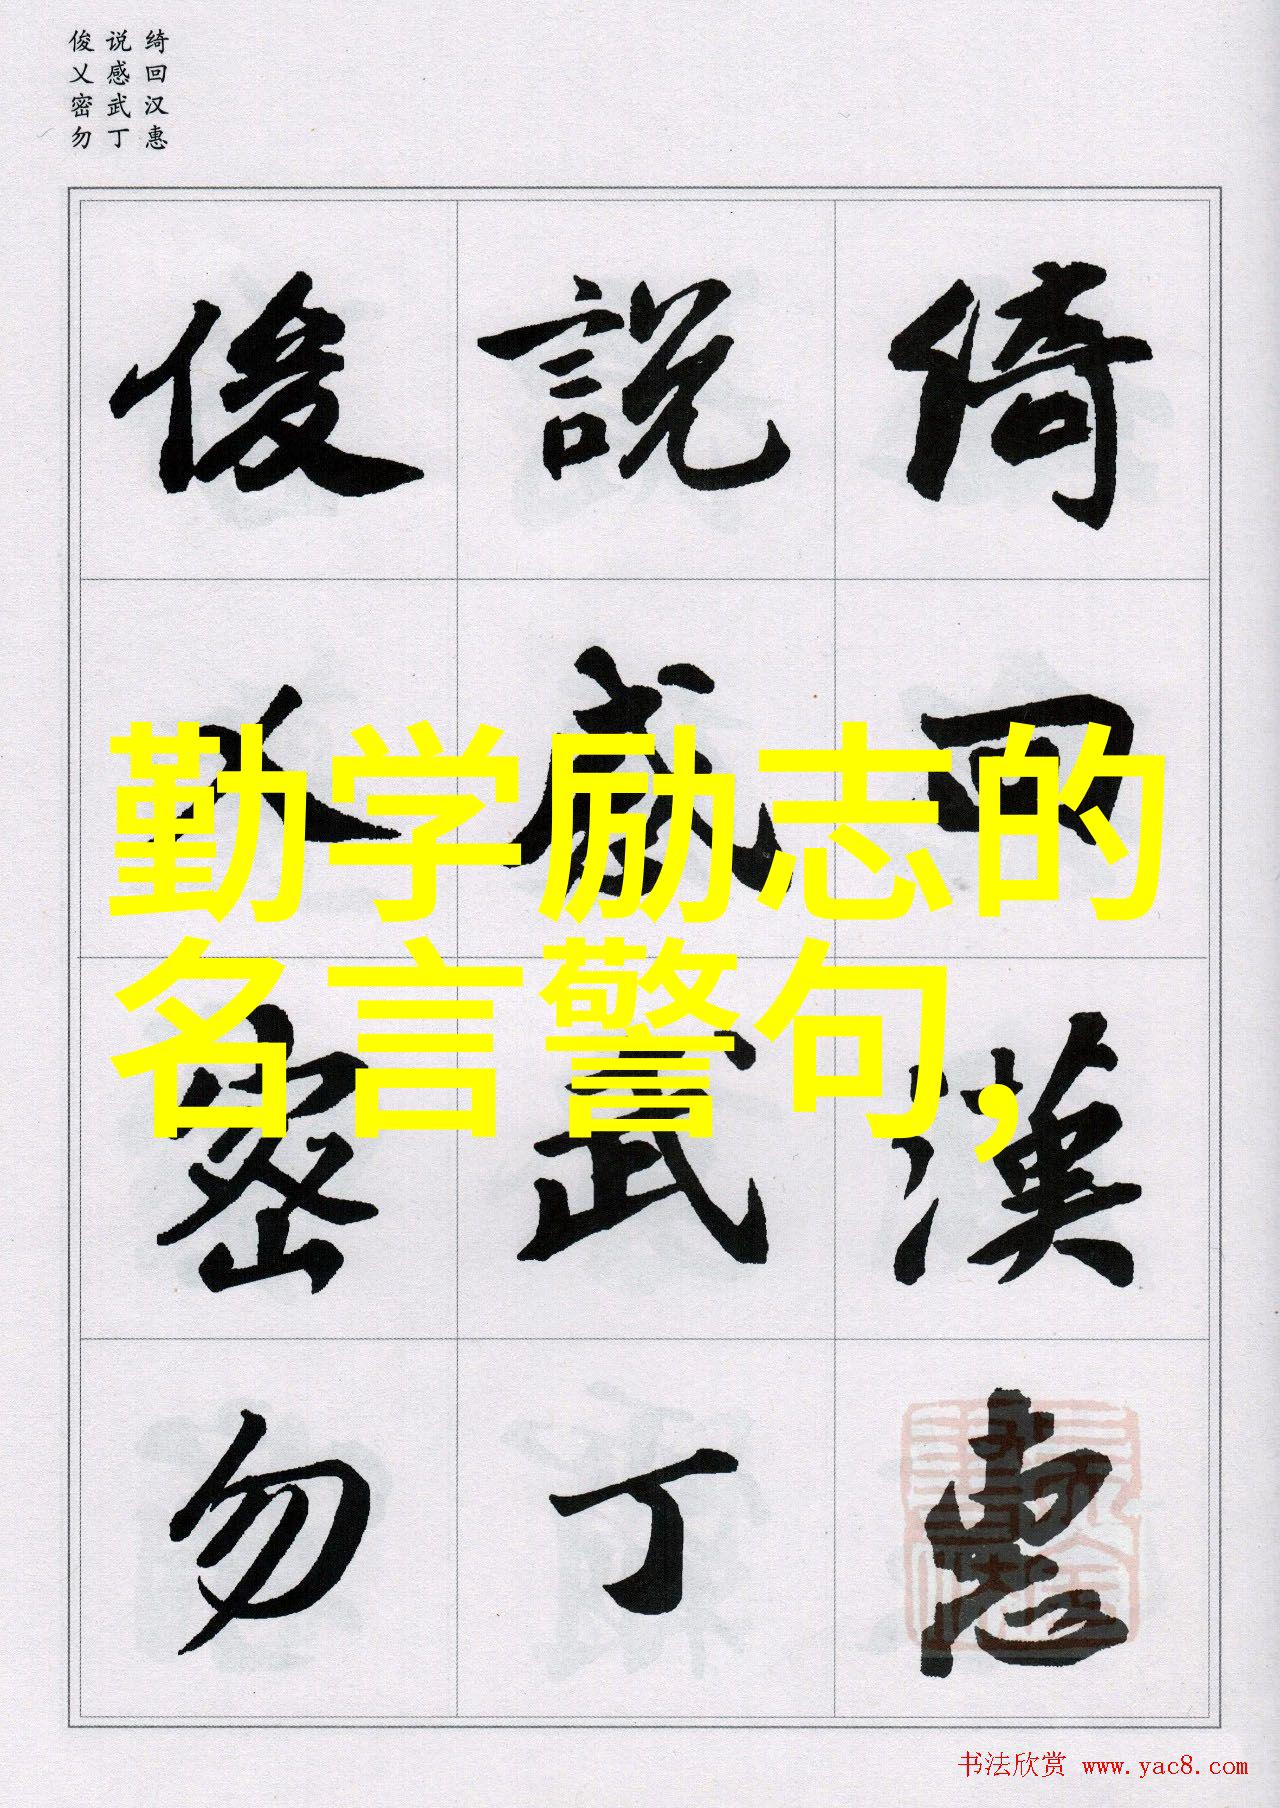 绮回汉惠
说感武丁
俊乂密勿
綺 回 漢 惠
說 感 武 丁
俊 乂 密 勿
勤学励志的
名言警句,
书法欣赏 www.yac8.com